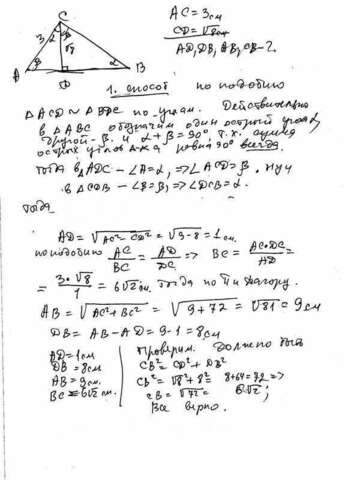 C
AC = 3см
CD = √8см
AD, DB, AB, CB - ?
3
α
β
√8
A
β
D
α
B
1. способ по подобию
△ACD ~ △BDC по углам. Действительно
в △ABC обозначим один острый угол α,
другой - β. и α+β = 90°, т.к. сумма
острых углов равна 90° всегда.
Тогда в △ADC - ∠A = α, => ∠ACD = β.
в △CDB - ∠B = β, => ∠DCB = α.
Тогда
AD = √AC² - CD² = √9-8 = 1см.
по подобию AC/BC = AD/DC => BC = AC·DC/AD =
= 3·√8/1 = 6√2 см. Тогда по Пифагору.
AB = √AC² + BC² = √9+72 = √81 = 9см
DB = AB - AD = 9-1 = 8см
AD = 1см
DB = 8см
AB = 9см.
BC = 6√2 см
Проверим. Должно быть
CB² = CD² + DB²
CB² = √8² + 8² = 8+64 = 72 =>
CB = √72 = 6√2;
Все верно.